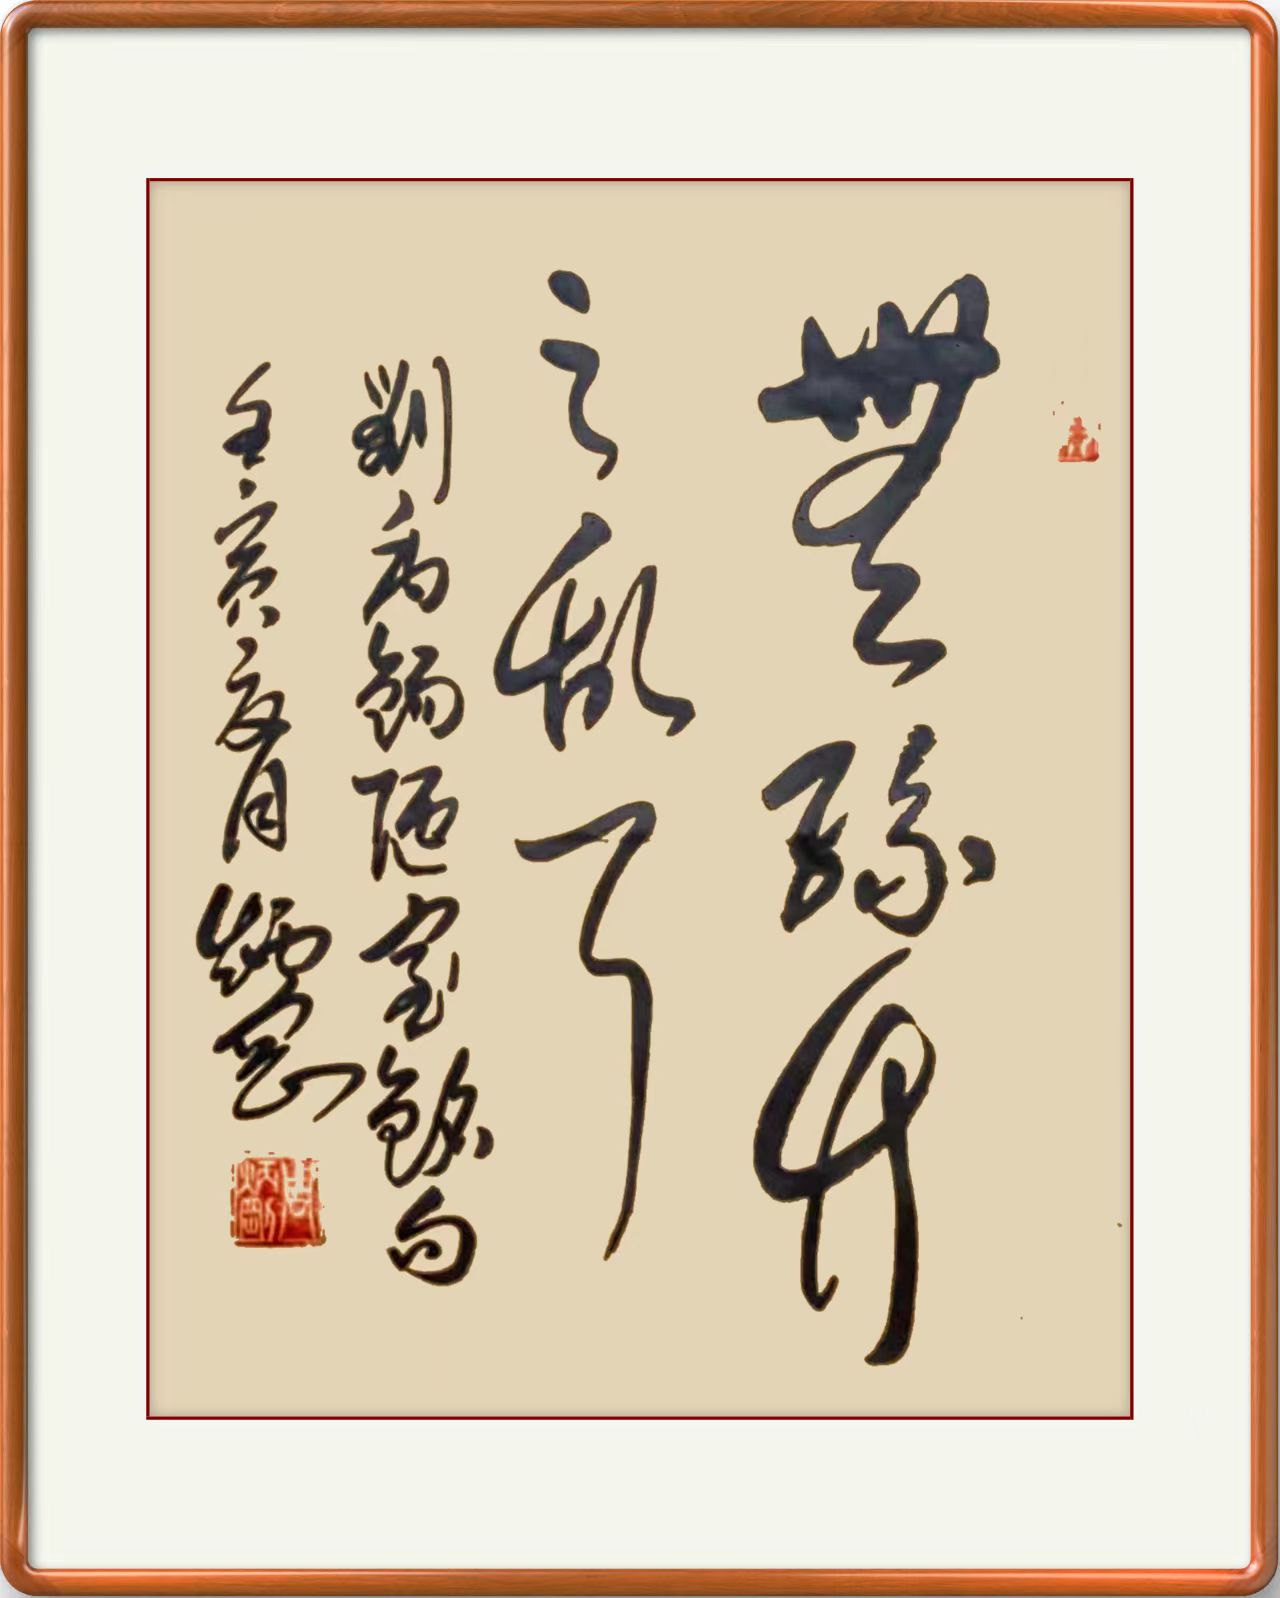 無絲竹
之乱耳
劉禹錫陋室銘句
壬寅夏月炳罡